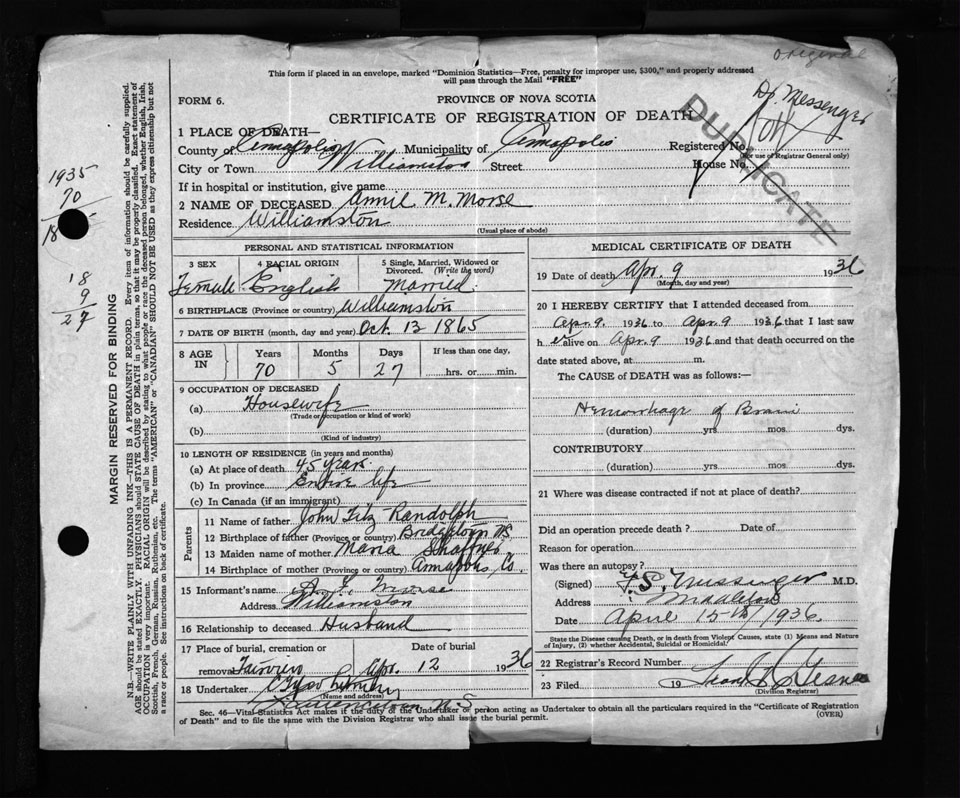 original
This form if placed in an envelope, marked "Dominion Statistics—Free, penalty for improper use, $300," and properly addressed
will pass through the Mail "FREE"
Dr. Messenger
FORM 6.
PROVINCE OF NOVA SCOTIA
CERTIFICATE OF REGISTRATION OF DEATH
DUPLICATE
1 PLACE OF DEATH—
County of Annapolis Municipality of Annapolis Registered No.
(For use of Registrar General only)
City or Town Williamston Street House No.
If in hospital or institution, give name
2 NAME OF DECEASED Annie M. Morse
Residence Williamston
(Usual place of abode)
PERSONAL AND STATISTICAL INFORMATION
3 SEX 4 RACIAL ORIGIN 5 Single, Married, Widowed or Divorced. (Write the word)
Female English Married
6 BIRTHPLACE (Province or country) Williamston
7 DATE OF BIRTH (month, day and year) Oct. 13 1865
8 AGE IN Years Months Days If less than one day,
70 5 27 hrs. or min.
9 OCCUPATION OF DECEASED
(a) Housewife
(Trade or occupation or kind of work)
(b)
(Kind of industry)
10 LENGTH OF RESIDENCE (in years and months)
(a) At place of death 45 years
(b) In province Entire life
(c) In Canada (if an immigrant)
Parents
11 Name of father John Fitz Randolph
12 Birthplace of father (Province or country) Bridgetown NS
13 Maiden name of mother Maria Shaffner
14 Birthplace of mother (Province or country) Annapolis Co.
15 Informant's name Morse
Address Williamston
16 Relationship to deceased Husband
17 Place of burial, cremation or Date of burial
removal Apr. 12 1936
18 Undertaker
(Name and address)
Lawrencetown N.S.
MEDICAL CERTIFICATE OF DEATH
19 Date of death Apr. 9 1936
(Month, day and year)
20 I HEREBY CERTIFY that I attended deceased from
Apr. 9. 1936 to Apr. 9 1936 that I last saw
her alive on Apr. 9 1936 and that death occurred on the
date stated above, at m.
The CAUSE OF DEATH was as follows:—
Hemorrhage of Brain
(duration) yrs mos dys.
CONTRIBUTORY
(duration) yrs mos dys.
21 Where was disease contracted if not at place of death?
Did an operation precede death? Date of
Reason for operation
Was there an autopsy?
(Signed) Messenger M.D.
Address Middleton
Date April 15th, 1936.
State the Disease causing Death, or in death from Violent Causes, state (1) Means and Nature
of Injury, (2) whether Accidental, Suicidal or Homicidal.
22 Registrar's Record Number
23 Filed 19
(Division Registrar)
Sec. 46—Vital Statistics Act makes it the duty of the Undertaker or person acting as Undertaker to obtain all the particulars required in the "Certificate of Registration
of Death" and to file the same with the Division Registrar who shall issue the burial permit. (OVER)
MARGIN RESERVED FOR BINDING
N.B.—WRITE PLAINLY WITH UNFADING INK—THIS IS A PERMANENT RECORD. Every item of information should be carefully supplied.
AGE should be stated EXACTLY. PHYSICIANS should STATE CAUSE OF DEATH in plain terms, so that it may be properly classified. Exact statement of
OCCUPATION is very important. RACIAL ORIGIN will be described by stating to what people or race the deceased person belonged, whether English, Irish,
Scottish, French, German, Russian, Ruthenian, etc. The terms "AMERICAN" or "CANADIAN" SHOULD NOT BE USED as they express citizenship but not
a race or people. See instructions on back of certificate.
1935
70
18
18
9
27